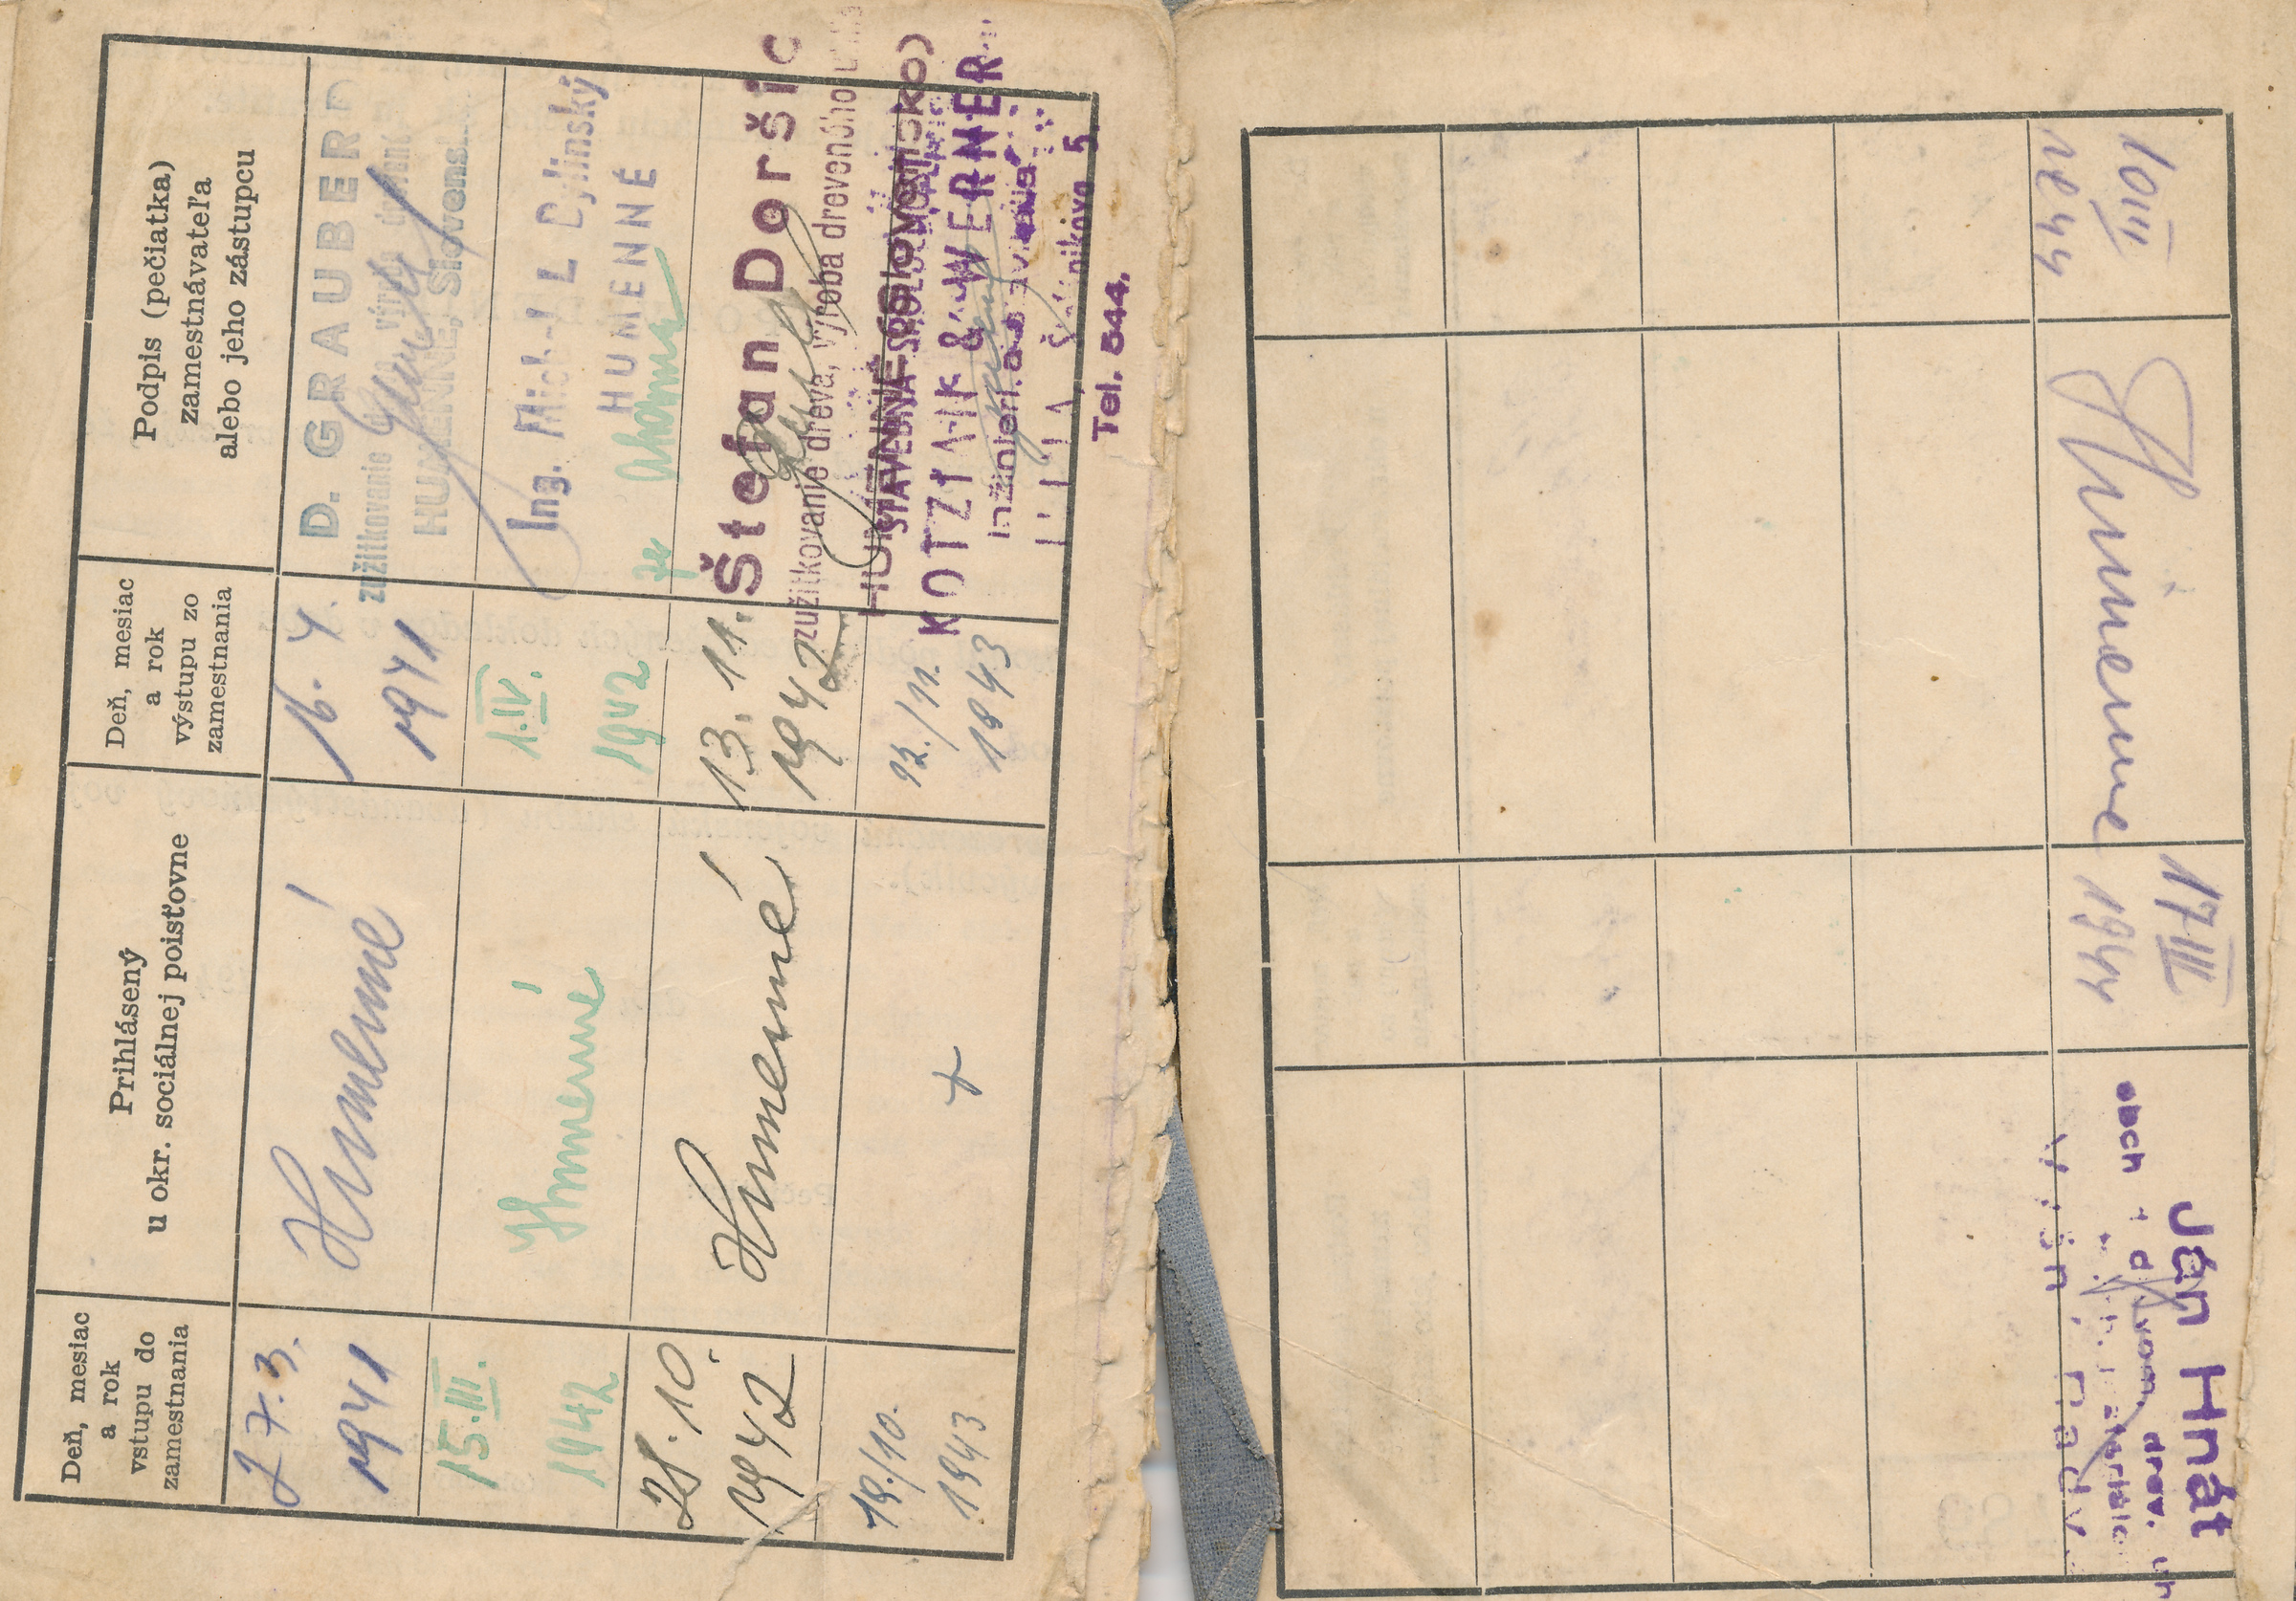 Deň, mesiac
a rok
vstupu do
zamestnania
Prihlásený
u okr. sociálnej poisťovne
Deň, mesiac
a rok
výstupu zo
zamestnania
Podpis (pečiatka)
zamestnávateľa
alebo jeho zástupcu
27.3.
1941
Humenné
16. 4.
1941
D. GRAUBER
zužitkovanie
HUMENNÉ, Slovensko
15.III.
1942
Humenné
1.IV.
1942
Ing. Dylinský
HUMENNÉ
28.10.
1942
Humenné
13. 11.
1942
Štefan Doršic
zužitkovanie dreva, výroba dreveného uhlia
HUMENNÉ (Slovensko)
19./10.
1943
+
22./11.
1943
STAVEBNÁ SPOLOČNOSŤ
KOTZIAN & WERNER
Tel. 544.
10III
1944
Humenne
17III
1944
Ján Hnát
obch
drev.